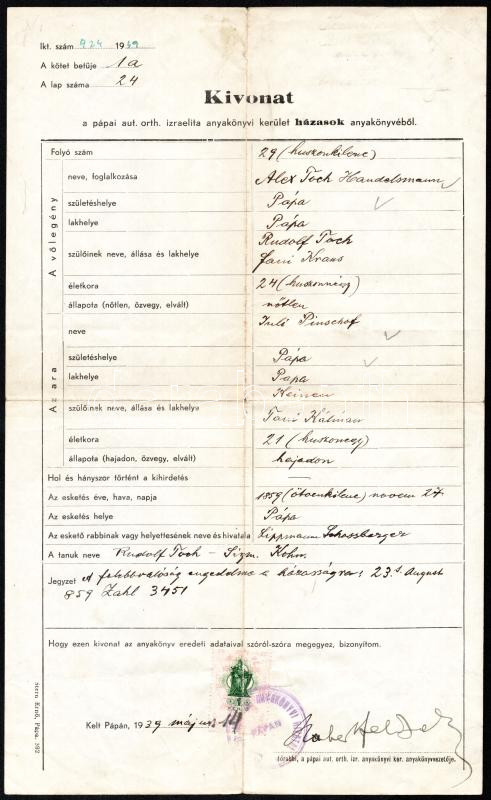 Ikt. szám 924 1939
A kötet betűje 1a
A lap száma 24
Kivonat
a pápai aut. orth. izraelita anyakönyvi kerület házasok anyakönyvéből.
Folyó szám 29 (huszonkilenc)
A vőlegény
neve, foglalkozása Alex Toch Handelsmann
születéshelye Pápa
lakhelye Pápa
szülőinek neve, állása és lakhelye Rudolf Toch
Fani Kraus
életkora 24 (huszonnégy)
állapota (nőtlen, özvegy, elvált) nőtlen
Az ara
neve Juli Pinschof
születéshelye Pápa
lakhelye Pápa
szülőinek neve, állása és lakhelye
Fani Kálmán
életkora 21 (huszonegy)
állapota (hajadon, özvegy, elvált) hajadon
Hol és hányszor történt a kihirdetés —
Az esketés éve, hava, napja 1859 (ötvenkilenc) novem 27.
Az esketés helye Pápa
Az eskető rabbinak vagy helyettesének neve és hivatala Lippmann Schossberger
A tanuk neve Rudolf Toch – Sigm. Kohn.
Jegyzet A felebbvalóság engedelme a házasságra: 23. August
859 Zahl 3451
Hogy ezen kivonat az anyakönyv eredeti adataival szóról-szóra megegyez, bizonyítom.
Kelt Pápán, 1939 május 14
PÁPÁN
főrabbi, a pápai aut. orth. izr. anyakönyvi ker. anyakönyvvezetője.
Stern Ernő, Pápa. 392